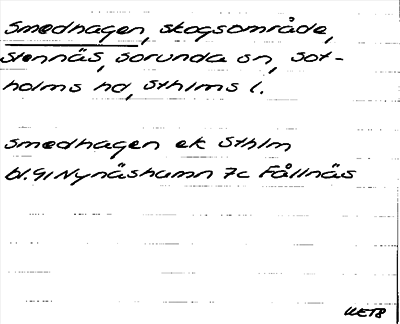 Smedhagen, skogsområde,
Stennäs, Sorunda sn, Sot-
holms hd, Sthlms l.
Smedhagen ek Sthlm
bl.91 Nynäshamn 7c Fållnäs